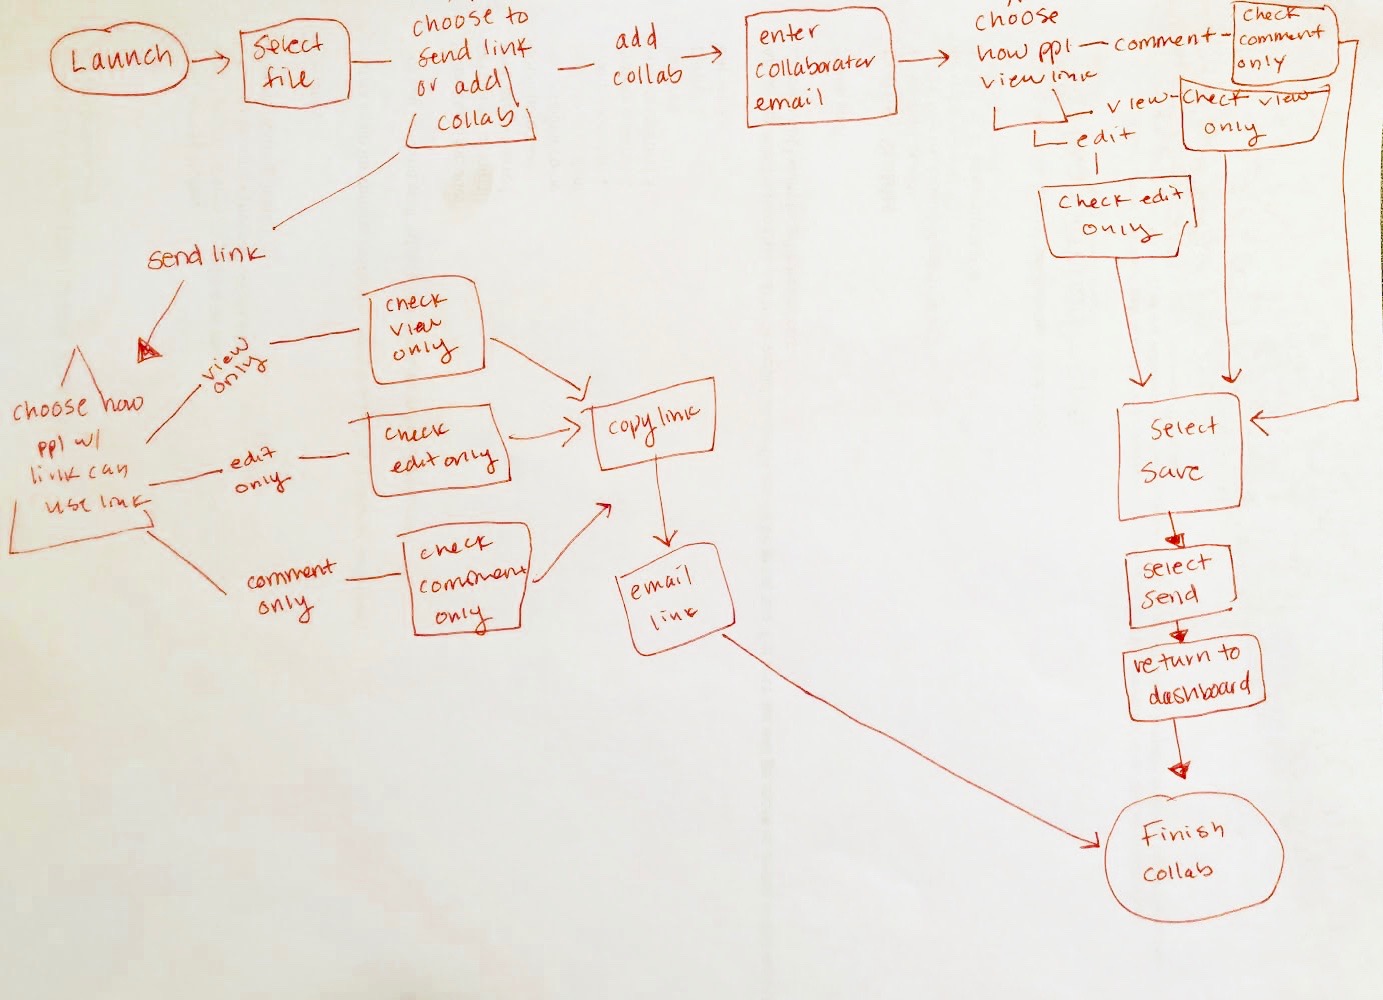 Launch
select
file
choose to
send link
or add
collab
add
collab
enter
collaborator
email
choose
how ppl
view link
comment
check
comment
only
view
check view
only
edit
check edit
only
send link
choose how
ppl w/
link can
use link
view
only
check
view
only
edit
only
check
edit only
comment
only
check
comment
only
copy link
email
link
select
save
select
send
return to
dashboard
Finish
collab